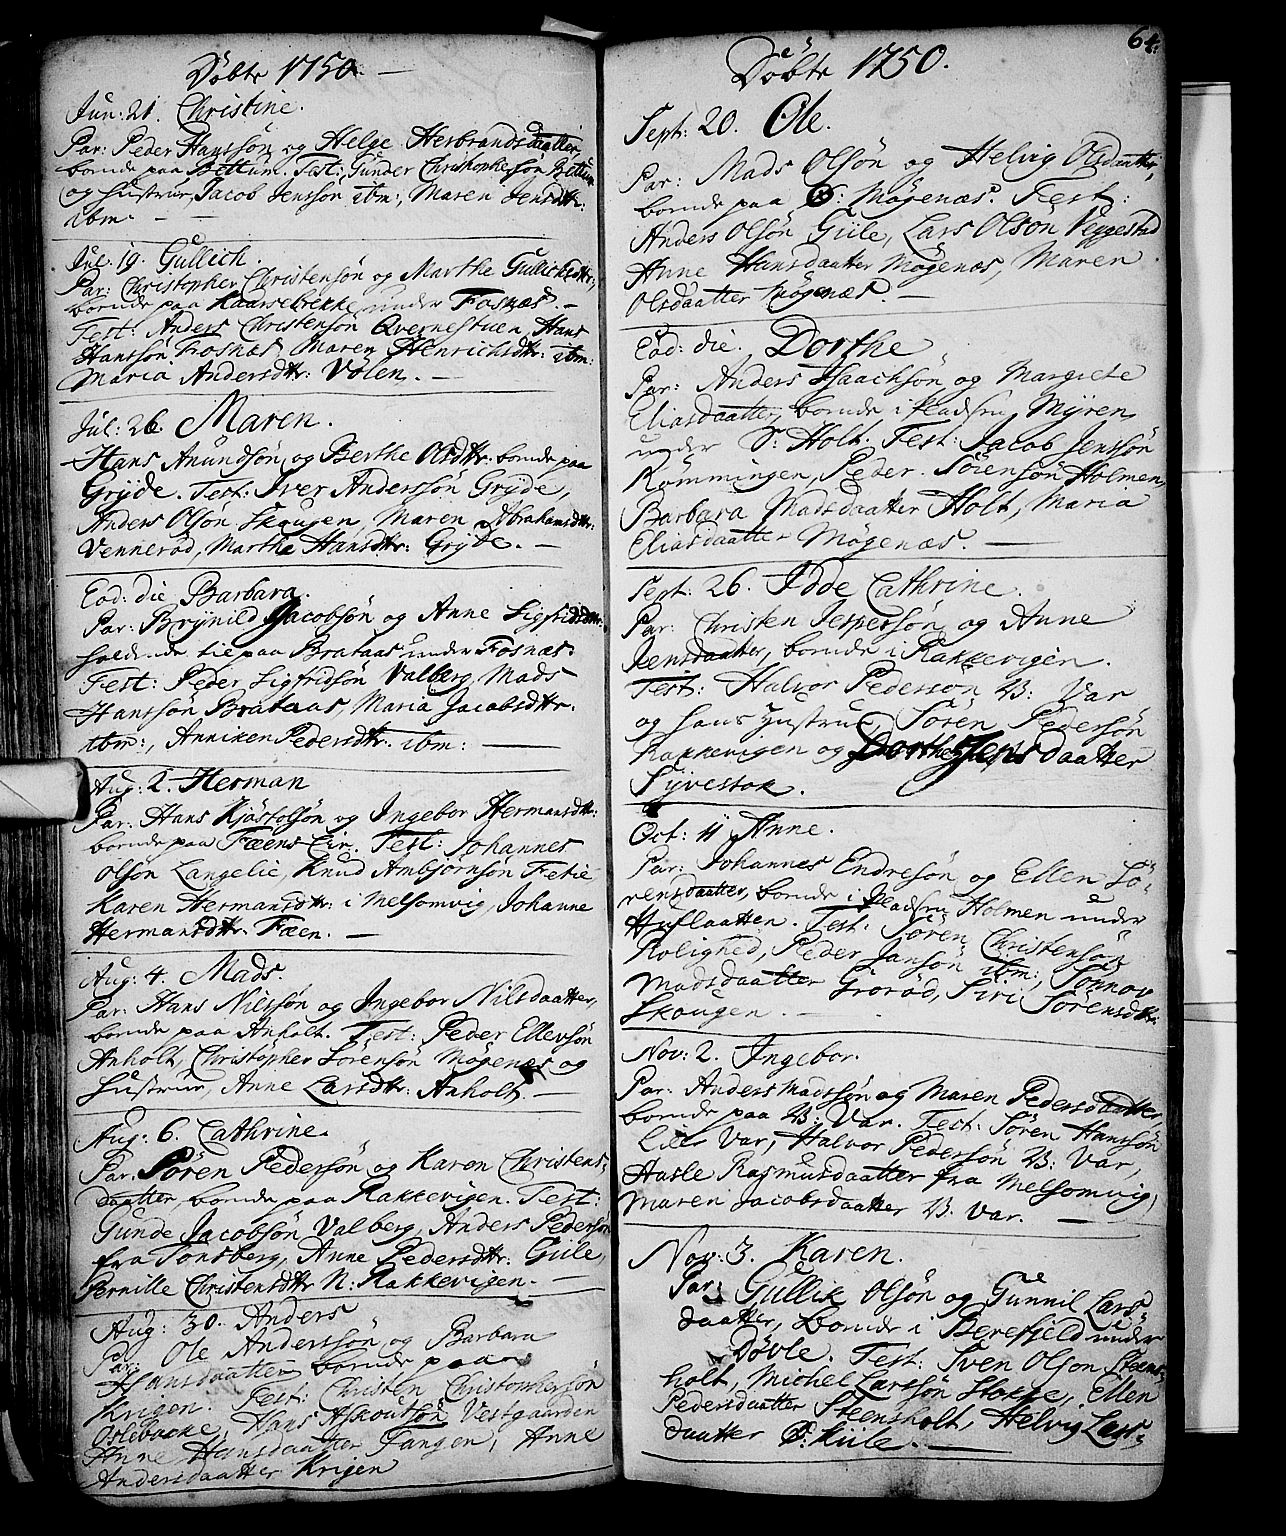 Döbte 1750. —
Jun: 21. Christine.
Par: Peder Hanssön og Helge Herbrandsdaatter
boende paa Bettum. Test: Gunder Christophersön Bettum
og Hustrue, Jacob Jenssön ibm:, Maren Jensdttr:
ibm. — —
Jul: 19. Gullich.
Par: Christopher Christensön og Marthe Gullichsdttr:,
boende paa Kaarsebekke under Fosnæs. —
Test: Anders Christensön Qvernestuen, Hans
Hanssön Fosnæs, Maren Henrichsdttr: ibm:
Maria Andersdttr: Volen. —
Jul: 26. Maren.
Hans Anundsön og Berthe Olsdttr: boende paa
Gryde. Test: Iver Anderssön Gryde,
Anders Olsön Skaugen, Maren Abrahamsdttr:
Venneröd, Marthe Hansdttr: Gryde. —
Eod: die Barbara.
Par: Brynild Jacobsön og Anne Sigfridsdttr:
holdende til paa Brataas under Fosnæs.
Test: Peder Sigfridsön Valberg, Mads
Hanssön Brataas, Maria Jacobsdttr:
ibm:, Anniken Pedersdttr: ibm: —
Aug: 2. Herman
Par: Hans Kjöstolsön og Ingebor Hermansdttr:
boende paa Fæens Eie. Test: Johannes
Olsön Langelie, Knud Ambjörnsön Fetie
Karen Hermansdttr: i Melsomvig, Johanne
Hermansdttr: Fæen. —
Aug: 4. Mads.
Par: Hans Nilssön og Ingebor Nilsdaatter,
boende paa Anholt. Test: Peder Ellevsön
Anholt, Christopher Sörensön Mögenæs og
Hustrue, Anne Larsdttr: Anholt. —
Aug: 6. Cathrine.
Par: Sören Pedersön og Karen Christens-
daatter, boende paa Rakkevigen. Test:
Gunde Jacobsön Valberg, Anders Pedersön
fra Tönsberg, Anne Pedersdttr: Giile,
Pernille Christensdttr N: Rakkevigen. —
Aug: 30. Anders
Par: Ole Anderssön og Barbara
Hansdaatter boende paa
Krigen. Test: Christen Christophersön
Oslebacke, Hans Askoutsön Vestgaarden
Anne Hansdaatter Tangen, Anne
Andersdaatter Krigen
64.
Döbte 1750.
Sept: 20. Ole.
Par: Mads Olsön og Helvig Olsdaatter,
boende paa Ø: Mögenæs. Test:
Anders Olsön Giile, Lars Olsön Veggestad
Anne Hansdaatter Mögenæs, Maren
Olsdaatter Mögenæs. —
Eod: die. Dorthe
Par: Anders Isaachsön og Margrete
Eliasdaatter, boende i Pladsen Myren
under S: Holt. Test: Jacob Jenssön
Römmingen, Peder Sörensön Holmen,
Barbara Madsdaatter Holt, Maria
Eliasdaatter Mögenæs. —
Sept: 26. Idde Cathrine.
Par: Christen Jespersön og Anne
Jensdaatter, boende i Rakkevigen.
Test: Halvor Pedersön W: Var
og hans Hustrue, Sören Pedersön
Rakkevigen og Dorthe Jensdaatter
Syvestok.
Oct: 11 Anne.
Par: Johannes Endresön og Ellen Sö-
rensdaatter, boende i Pladsen Holmen under
Huflaatten. Test: Sören Christensön
Rolighed, Peder Jansön ibm:, Sönnov
Madsdaatter Groröd, Siri Sörensdttr:
Skougen. —
Nov: 2. Ingebor.
Par: Anders Madssön og Maren Pedersdaatter,
boende paa W: Var. Test: Sören Hanssön
Lille Var, Halvor Pedersön W: Var,
Aasle Rasmusdaatter fra Melsomvig,
Maren Jacobsdaatter W. Var. —
Nov: 3. Karen.
Par: Gullik Olsön og Gunnil Lars-
daatter, boende i Berefjeld under
Døvle. Test: Sven Olson Steens-
holt, Michel Larssön Hokke, Ellen
Pedersdaatter Steensholt, Helvig Lars-
daatter Ø: Kiile. —